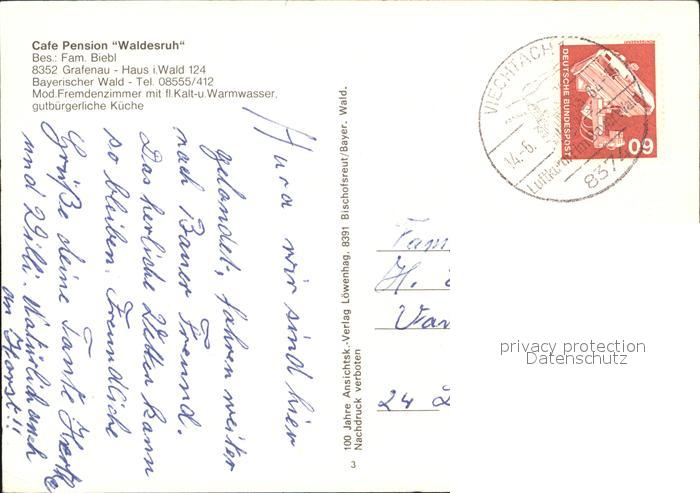 Cafe Pension "Waldesruh"
Bes.: Fam. Biebl
8352 Grafenau - Haus i.Wald 124
Bayerischer Wald - Tel. 08555/412
Mod.Fremdenzimmer mit fl.Kalt-u.Warmwasser,
gutbürgerliche Küche
Hura wir sind hier
gelandet, fahren weiter
nach Bauer Freund.
Das herliche Wetter kann
so bleiben. Freundliche
Grüße deine Tante Herta
und Willi. Natürlich auch
an Horst!!
100 Jahre Ansichtsk.-Verlag Löwenhag, 8391 Bischofsreut/Bayer. Wald.
Nachdruck verboten
3
VIECHTACH 1
14.-6.
8374
DEUTSCHE BUNDESPOST
60
Fam
H.
24
privacy protection
Datenschutz